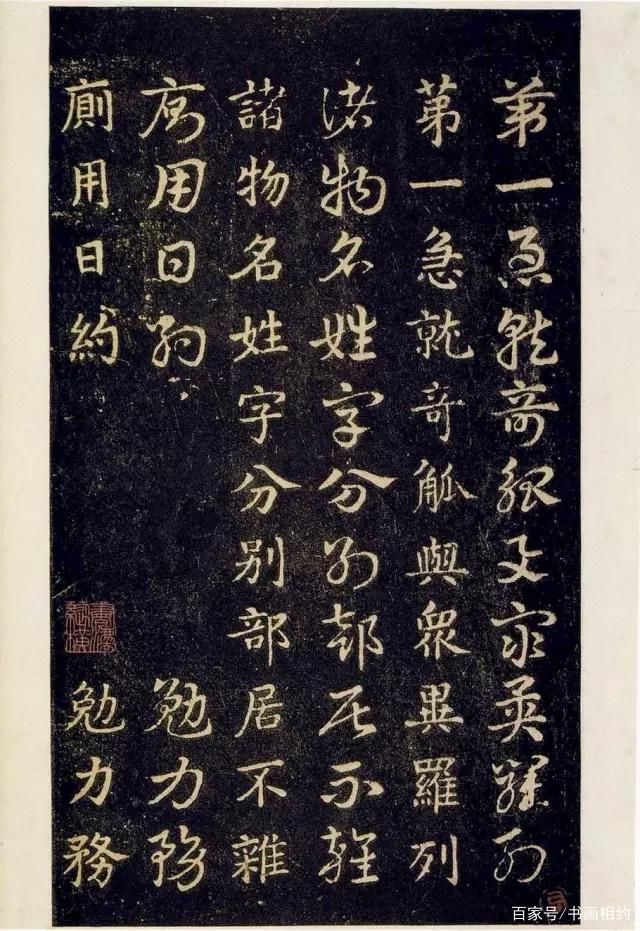 第一急就奇觚與衆異羅列
第一急就奇觚與衆異羅列
諸物名姓字分別部居不雜
諸物名姓字分別部居不雜
廁用日約 勉力務
廁用日約 勉力務
百家号/书画相约